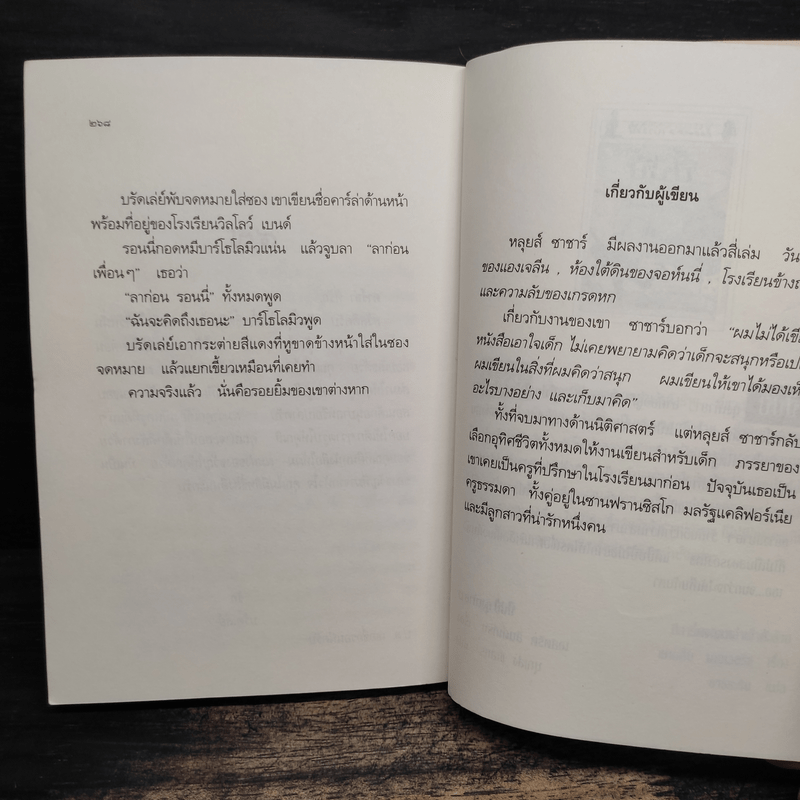 ๒๖๘
บรัดเล่ย์พับจดหมายใส่ซอง เขาเขียนชื่อคาร์ล่าด้านหน้า
พร้อมที่อยู่ของโรงเรียนวิลโลว์ เบนด์
รอนนี่กอดหมีบาร์โธโลมิวแน่น แล้วจูบลา “ลาก่อน
เพื่อน ๆ” เธอว่า
“ลาก่อน รอนนี่” ทั้งหมดพูด
“ฉันจะคิดถึงเธอนะ” บาร์โธโลมิวพูด
บรัดเล่ย์เอากระต่ายสีแดงที่หูขาดข้างหน้าใส่ในซอง
จดหมาย แล้วแยกเขี้ยวเหมือนที่เคยทำ
ความจริงแล้ว นั่นคือรอยยิ้มของเขาต่างหาก
เกี่ยวกับผู้เขียน
หลุยส์ ซาชาร์ มีผลงานออกมาแล้วสี่เล่ม วัน
ของแองเจลีน , ห้องใต้ดินของจอห์นนี่ , โรงเรียนข้าง
และความลับของเกรดหก
เกี่ยวกับงานของเขา ซาชาร์บอกว่า “ผมไม่ได้เขี
หนังสือเอาใจเด็ก ไม่เคยพยายามคิดว่าเด็กจะสนุกหรือ
ผมเขียนในสิ่งที่ผมคิดว่าสนุก ผมเขียนให้เขาได้มอง
อะไรบางอย่าง และเก็บมาคิด”
ทั้งที่จบมาทางด้านนิติศาสตร์ แต่หลุยส์ ซาชาร์กลับ
เลือกอุทิศชีวิตทั้งหมดให้งานเขียนสำหรับเด็ก ภรรยาของ
เขาเคยเป็นครูที่ปรึกษาในโรงเรียนมาก่อน ปัจจุบันเธอเป็น
ครูธรรมดา ทั้งคู่อยู่ในซานฟรานซิสโก มลรัฐแคลิฟอร์เนีย
และมีลูกสาวที่น่ารักหนึ่งคน